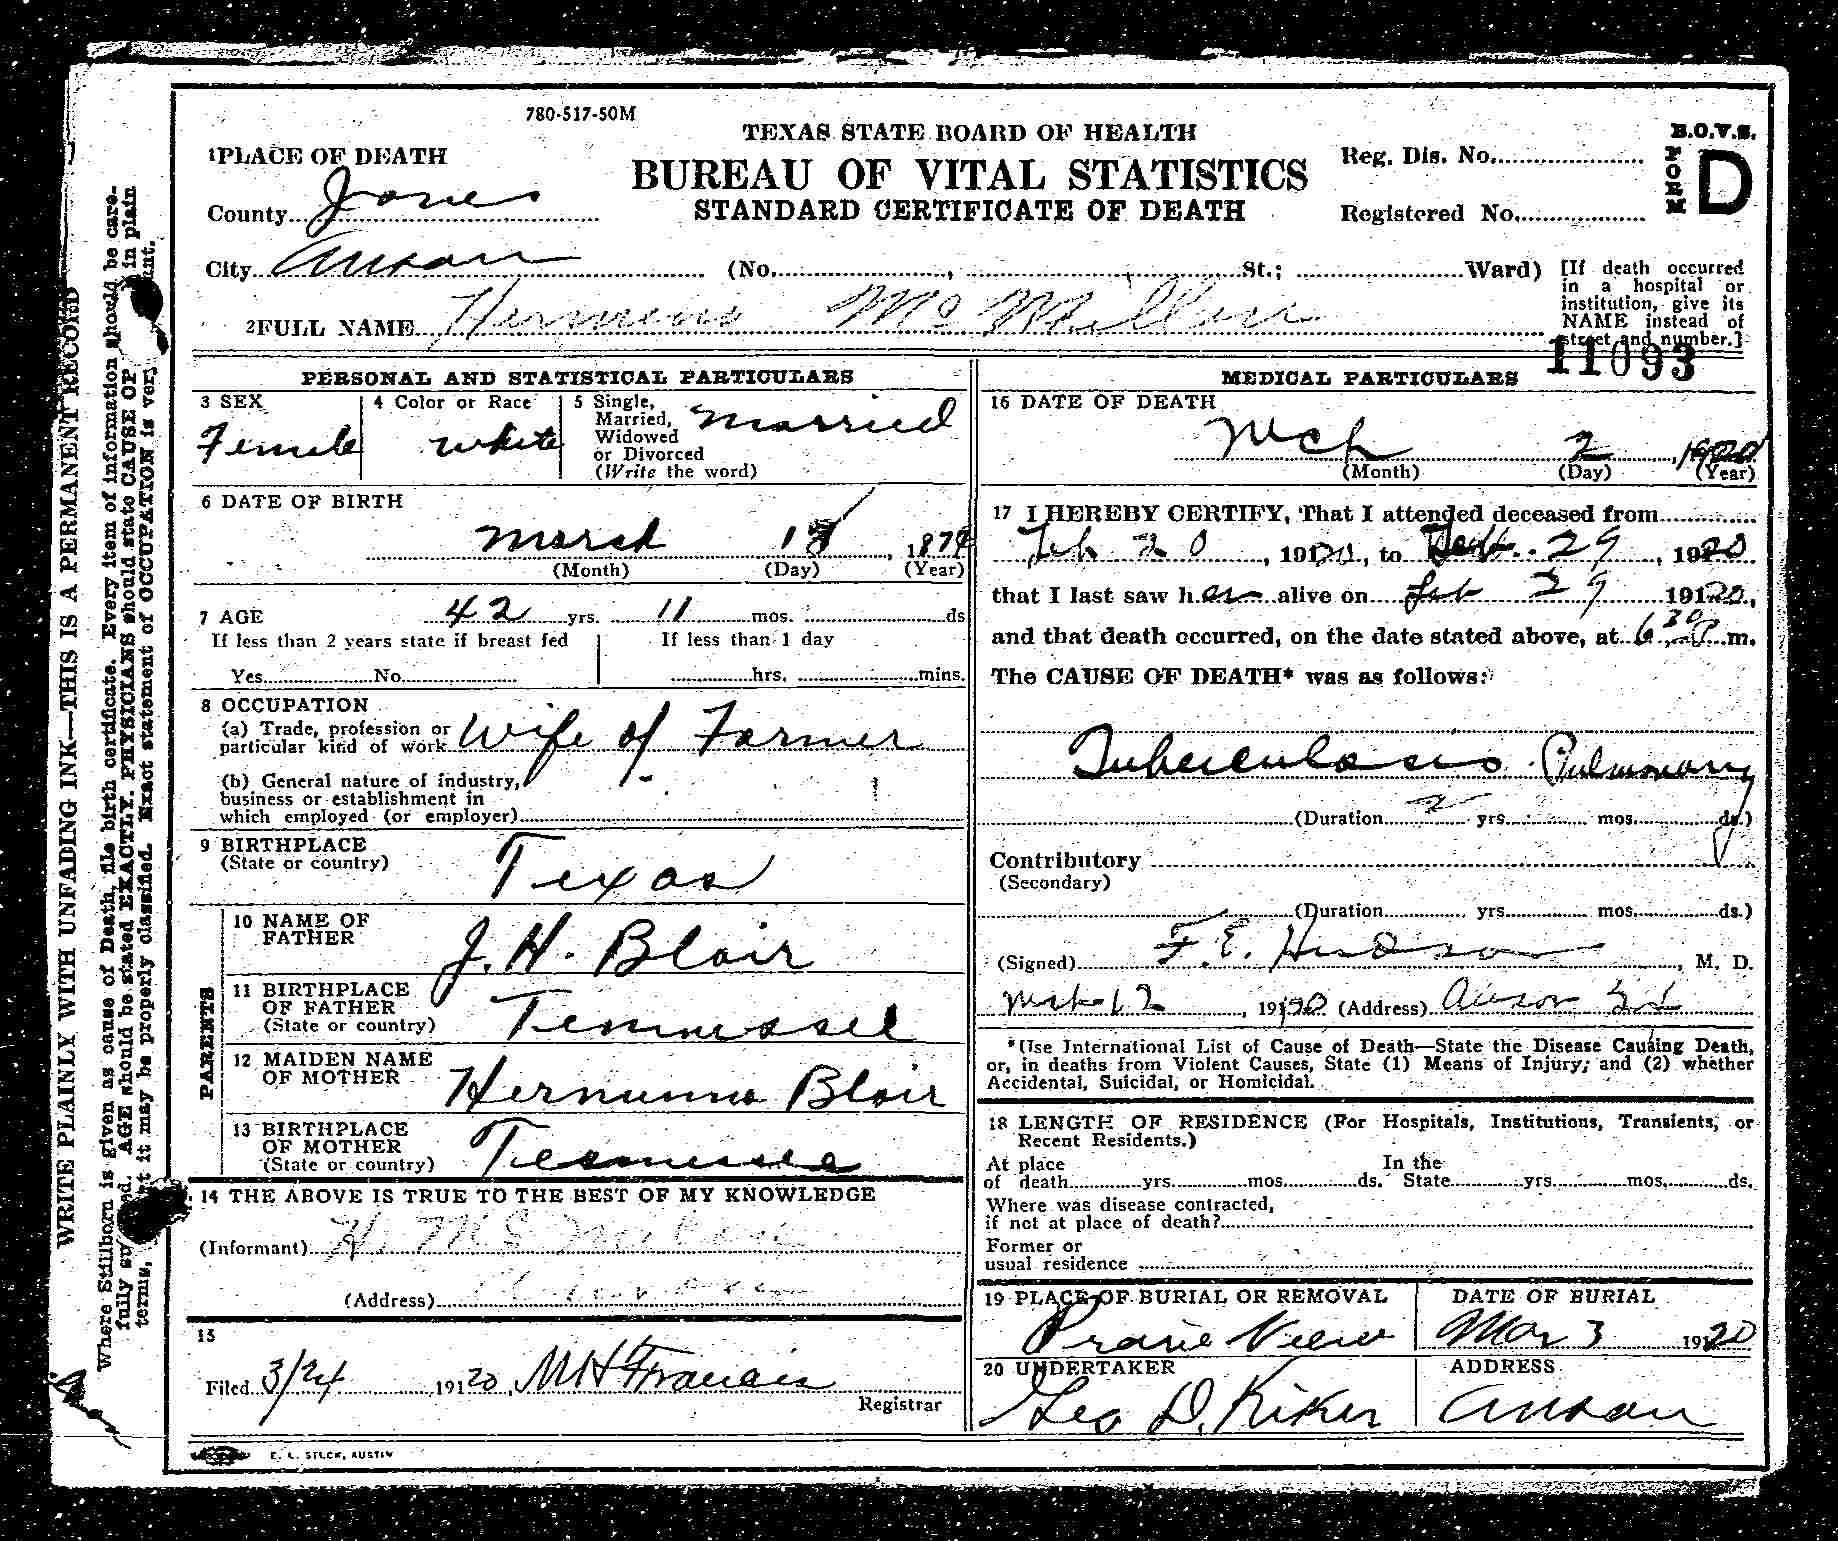 780-517-50M
TEXAS STATE BOARD OF HEALTH
BUREAU OF VITAL STATISTICS
STANDARD CERTIFICATE OF DEATH
B.O.V.S.
FORM D
Reg. Dis. No.
Registered No.
1 PLACE OF DEATH
County Jones
City Anson (No. , St.; Ward)
[If death occurred
in a hospital or
institution, give its
NAME instead of
street and number.]
2 FULL NAME Mc Millan
11093
PERSONAL AND STATISTICAL PARTICULARS
3 SEX
Female
4 Color or Race
white
5 Single,
Married,
Widowed
or Divorced
(Write the word)
Married
6 DATE OF BIRTH
March 18, 187
(Month) (Day) (Year)
7 AGE 42 yrs. 11 mos. ds
If less than 2 years state if breast fed
Yes No
If less than 1 day
hrs. mins.
8 OCCUPATION
(a) Trade, profession or
particular kind of work Wife of Farmer
(b) General nature of industry,
business or establishment in
which employed (or employer)
9 BIRTHPLACE
(State or country) Texas
PARENTS
10 NAME OF
FATHER J. H. Blair
11 BIRTHPLACE
OF FATHER
(State or country) Tennessee
12 MAIDEN NAME
OF MOTHER Blair
13 BIRTHPLACE
OF MOTHER
(State or country) Tennessee
14 THE ABOVE IS TRUE TO THE BEST OF MY KNOWLEDGE
(Informant) H
(Address)
15
Filed 3/24 19120, M H Francis
Registrar
E. L. STECK, AUSTIN
MEDICAL PARTICULARS
16 DATE OF DEATH
Mch 2, 1920
(Month) (Day) (Year)
17 I HEREBY CERTIFY, That I attended deceased from
Feb 20, 19120, to Feb. 29, 1920
that I last saw her alive on Feb 29 19120,
and that death occurred, on the date stated above, at 6:30 P m.
The CAUSE OF DEATH* was as follows:
Tuberculosis Pulmonary
(Duration 2 yrs. mos. ds.)
Contributory
(Secondary)
(Duration yrs. mos. ds.)
(Signed) F. E. Hudson, M. D.
12, 19120 (Address) Anson
*(Use International List of Cause of Death—State the Disease Causing Death,
or, in deaths from Violent Causes, State (1) Means of Injury; and (2) whether
Accidental, Suicidal, or Homicidal.
18 LENGTH OF RESIDENCE (For Hospitals, Institutions, Transients, or
Recent Residents.)
At place
of death yrs. mos. ds.
In the
State yrs. mos. ds.
Where was disease contracted,
if not at place of death?
Former or
usual residence
19 PLACE OF BURIAL OR REMOVAL
Prarie View
DATE OF BURIAL
Mar 3 19120
20 UNDERTAKER
Geo D. Kiker
ADDRESS
Anson
WRITE PLAINLY WITH UNFADING INK—THIS IS A PERMANENT RECORD
Where Stillborn is given as cause of Death, file birth certificate. Every item of information should be care-
fully . AGE should be stated EXACTLY. PHYSICIANS should state CAUSE OF in plain
terms, it may be properly classified. Exact statement of OCCUPATION is very